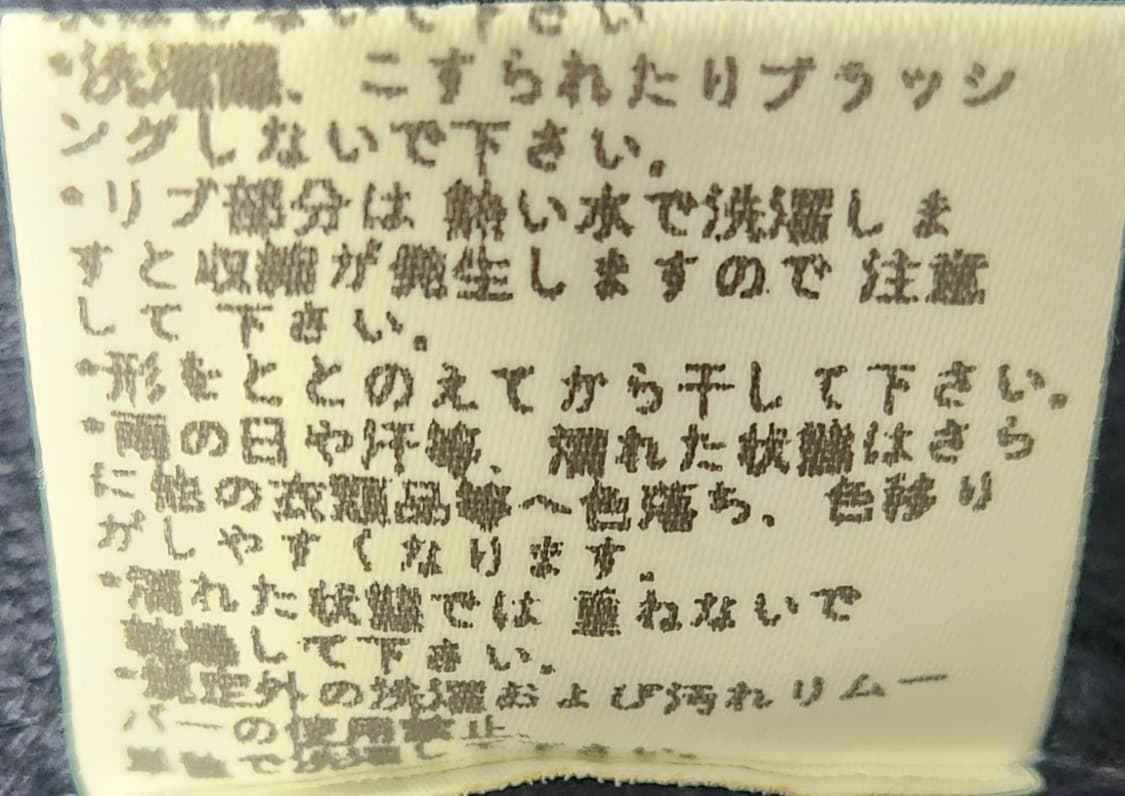 ないで下さい
・洗濯機、こすられたりブラッシ
ングしないで下さい。
・リブ部分は 熱い水で洗濯しま
すと収縮が発生しますので 注意
して 下さい。
・形をととのえてから干して下さい。
・雨の日や汗等、濡れた状態はさら
に他の衣類品等へ色落ち、色移り
がしやすくなります。
・濡れた状態では 重ねないで
乾燥して下さい。
・規定外の洗濯および汚れリムー
バーの使用禁止
単独で洗濯して